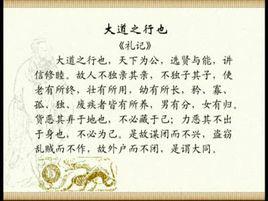 大道之行也
《礼记》
大道之行也，天下为公，选贤与能，讲
信修睦。故人不独亲其亲，不独子其子，使
老有所终，壮有所用，幼有所长，矜、寡、
孤、独、废疾者皆有所养，男有分，女有归。
货恶其弃于地也，不必藏于己；力恶其不出
于身也，不必为己。是故谋闭而不兴，盗窃
乱贼而不作，故外户而不闭，是谓大同。